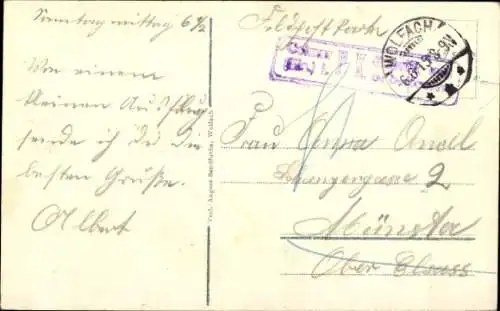 Sonntag mittag 6 ½
Von einem
kleinen Ausflug
sende ich dir die
besten Grüße.
Albert
Feldpostkarte
WOLFACH
Frau Anna Ancel
2
Münster
Ober Elsass
Verl. August Sandfuchs, Wolfach